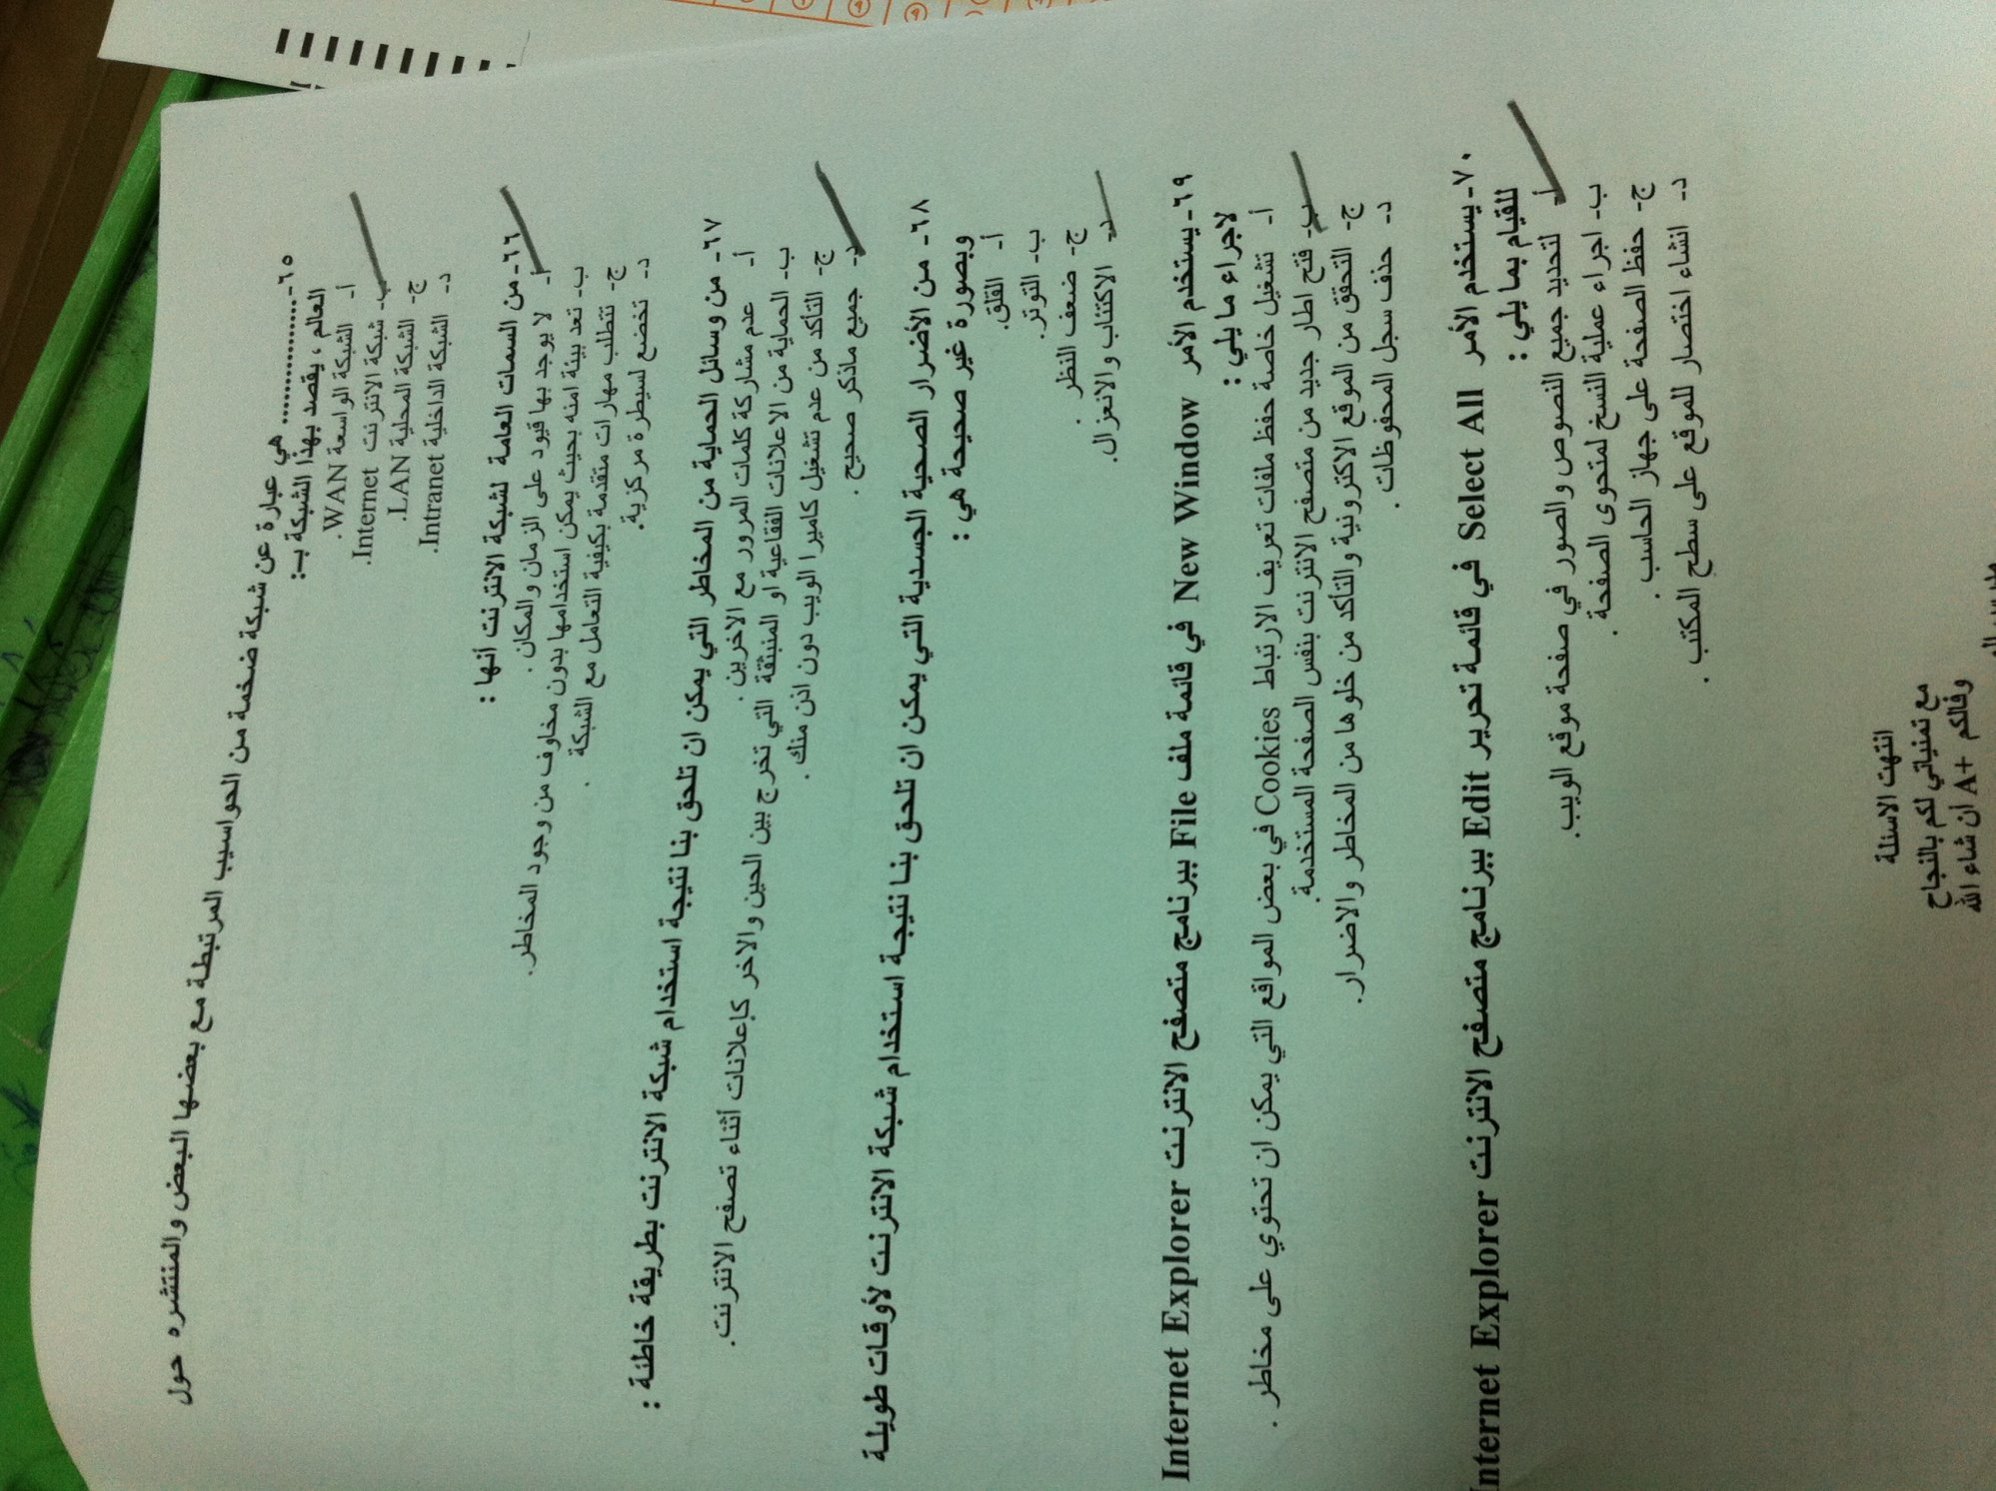 ٦٥-................. هي عبارة عن شبكة ضخمة من الحواسيب المرتبطة مع بعضها البعض والمنتشره حول
العالم ، يقصد بهذا الشبكة بـ:
أ- الشبكة الواسعة WAN.
ب- شبكة الانترنت Internet.
ج- الشبكة المحلية LAN.
د- الشبكة الداخلية Intranet.
٦٦-من السمات العامة لشبكة الانترنت أنها :
أ- لا يوجد بها قيود على الزمان والمكان .
ب- تعد بيئة امنه بحيث يمكن استخدامها بدون مخاوف من وجود المخاطر.
ج- تتطلب مهارات متقدمة بكيفية التعامل مع الشبكة .
د- تخضع لسيطرة مركزية.
٦٧- من وسائل الحماية من المخاطر التي يمكن ان تلحق بنا نتيجة استخدام شبكة الانترنت بطريقة خاطئة :
أ- عدم مشاركة كلمات المرور مع الاخرين .
ب- الحماية من الاعلانات الفقاعية او المنبثقة التي تخرج بين الحين والاخر كإعلانات أثناء تصفح الانترنت.
ج- التأكد من عدم تشغيل كاميرا الويب دون اذن منك .
د- جميع ماذكر صحيح .
٦٨- من الأضرار الصحية الجسدية التي يمكن ان تلحق بنا نتيجة استخدام شبكة الانترنت لأوقات طويلة
وبصورة غير صحيحة هي :
أ- القلق.
ب- التوتر.
ج- ضعف النظر .
د- الاكتئاب والانعزال.
٦٩-يستخدم الأمر New Window في قائمة ملف File ببرنامج متصفح الانترنت Internet Explorer
لاجراء ما يلي :
أ- تشغيل خاصة حفظ ملفات تعريف الارتباط Cookies في بعض المواقع التي يمكن ان تحتوي على مخاطر .
ب- فتح اطار جديد من متصفح الانترنت بنفس الصفحة المستخدمة.
ج- التحقق من الموقع الاكترونية والتأكد من خلوها من المخاطر والاضرار.
د- حذف سجل المحفوظات .
٧٠-يستخدم الأمر Select All في قائمة تحرير Edit ببرنامج متصفح الانترنت Internet Explorer
للقيام بما يلي :
أ- لتحديد جميع النصوص والصور في صفحة موقع الويب.
ب- اجراء عملية النسخ لمتحوى الصفحة .
ج- حفظ الصفحة على جهاز الحاسب .
د- انشاء اختصار للموقع على سطح المكتب .
انتهت الاسئلة
مع تمنياتي لكم بالنجاح
وفالكم A+ ان شاء الله